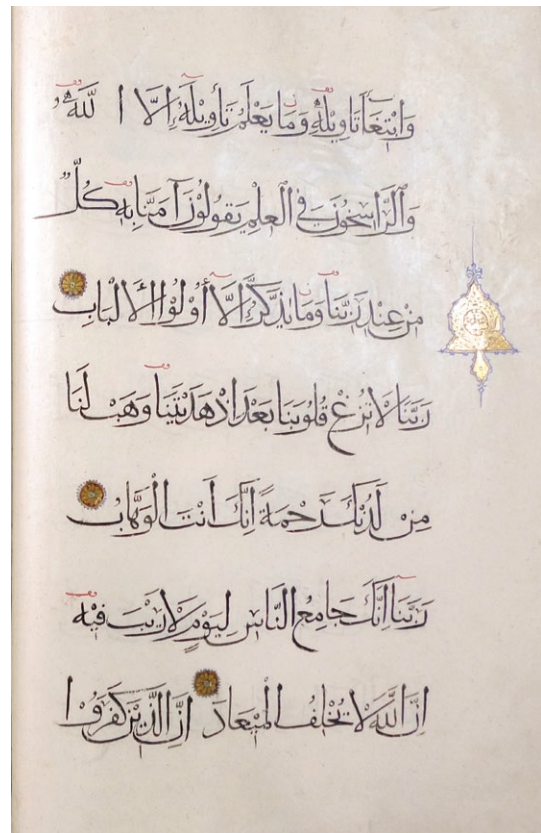 وَابْتِغَآءَ تَاْوِيْلِهٖ وَمَا يَعْلَمُ تَاْوِيْلَهٗٓ اِلَّا اللّٰهُ وَ
وَالرَّاسِخُوْنَ فِي الْعِلْمِ يَقُوْلُوْنَ اٰمَنَّا بِهٖ كُلٌّ
مِنْ عِنْدِ رَبِّنَا وَمَا يَذَّكَّرُ اِلَّآ اُولُوا الْاَلْبَابِ
رَبَّنَا لَا تُزِغْ قُلُوْبَنَا بَعْدَ اِذْ هَدَيْتَنَا وَهَبْ لَنَا
مِنْ لَدُنْكَ رَحْمَةً اِنَّكَ اَنْتَ الْوَهَّابُ
رَبَّنَآ اِنَّكَ جَامِعُ النَّاسِ لِيَوْمٍ لَا رَيْبَ فِيْهِ
اِنَّ اللّٰهَ لَا يُخْلِفُ الْمِيْعَادَ اِنَّ الَّذِيْنَ كَفَرُوْا